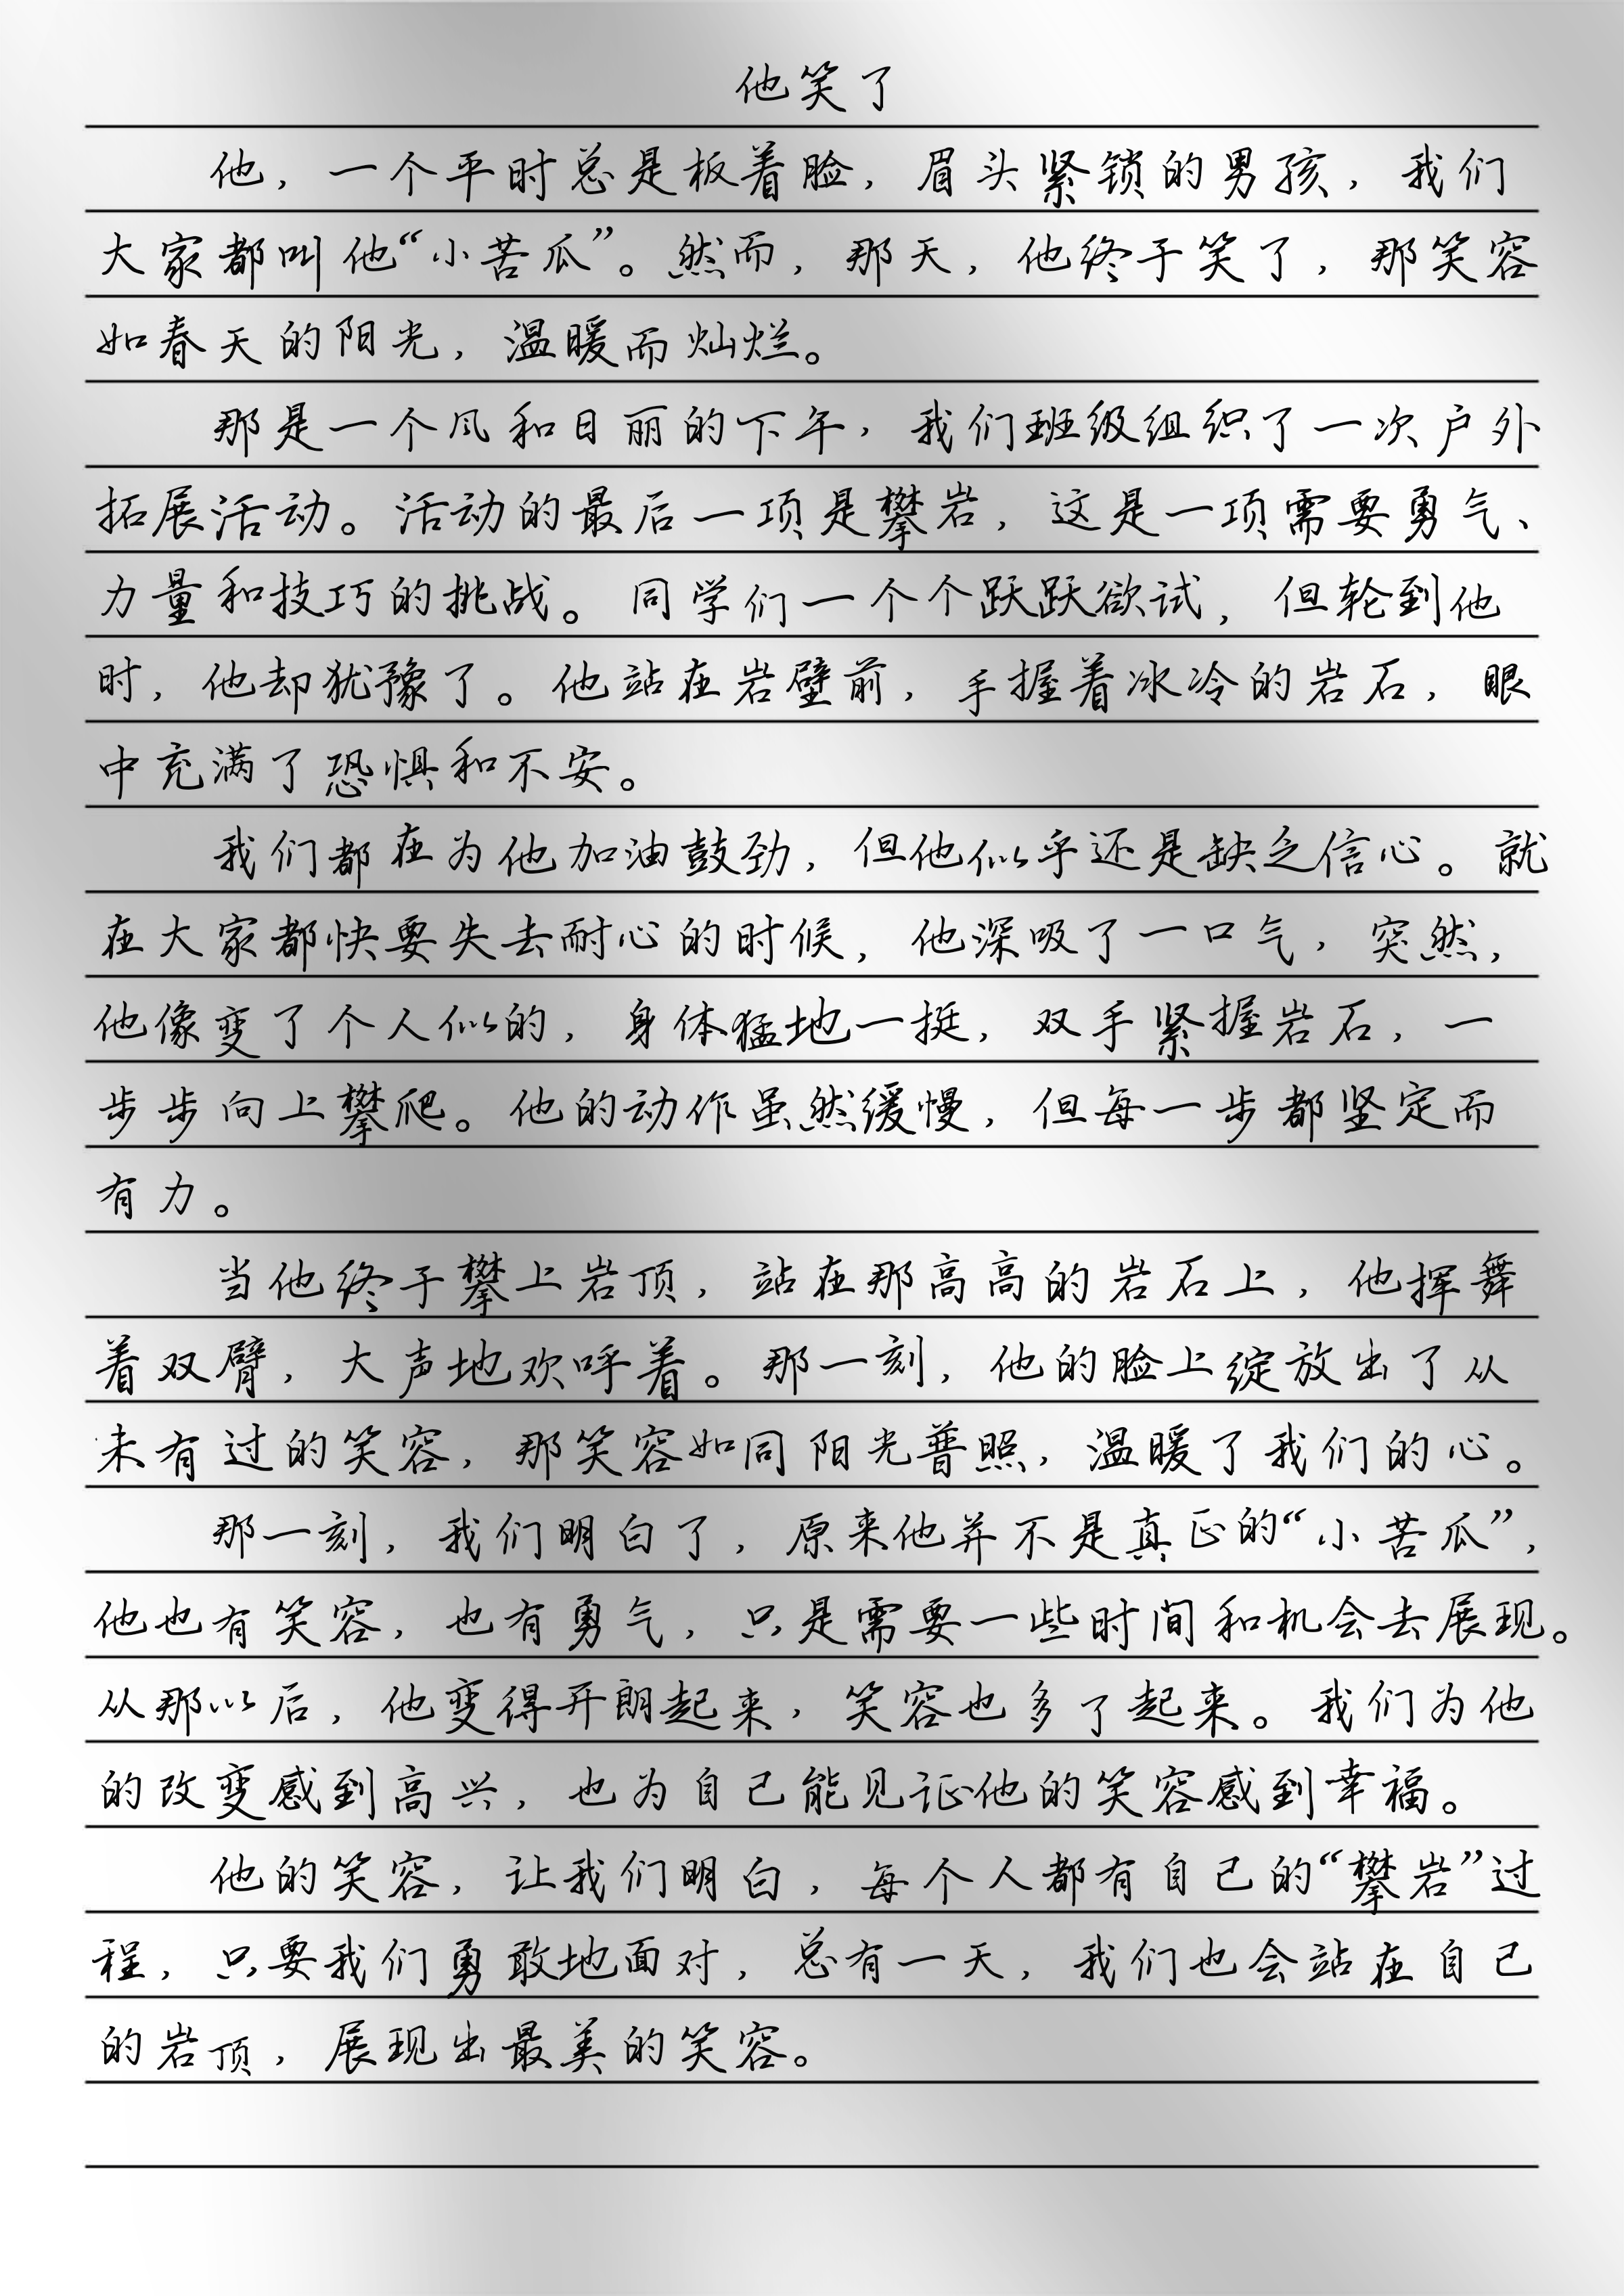 他笑了
他，一个平时总是板着脸，眉头紧锁的男孩，我们
大家都叫他“小苦瓜”。然而，那天，他终于笑了，那笑容
如春天的阳光，温暖而灿烂。
那是一个风和日丽的下午，我们班级组织了一次户外
拓展活动。活动的最后一项是攀岩，这是一项需要勇气、
力量和技巧的挑战。同学们一个个跃跃欲试，但轮到他
时，他却犹豫了。他站在岩壁前，手握着冰冷的岩石，眼
中充满了恐惧和不安。
我们都在为他加油鼓劲，但他似乎还是缺乏信心。就
在大家都快要失去耐心的时候，他深吸了一口气，突然，
他像变了个人似的，身体猛地一挺，双手紧握岩石，一
步步向上攀爬。他的动作虽然缓慢，但每一步都坚定而
有力。
当他终于攀上岩顶，站在那高高的岩石上，他挥舞
着双臂，大声地欢呼着。那一刻，他的脸上绽放出了从
未有过的笑容，那笑容如同阳光普照，温暖了我们的心。
那一刻，我们明白了，原来他并不是真正的“小苦瓜”，
他也有笑容，也有勇气，只是需要一些时间和机会去展现。
从那以后，他变得开朗起来，笑容也多了起来。我们为他
的改变感到高兴，也为自己能见证他的笑容感到幸福。
他的笑容，让我们明白，每个人都有自己的“攀岩”过
程，只要我们勇敢地面对，总有一天，我们也会站在自己
的岩顶，展现出最美的笑容。